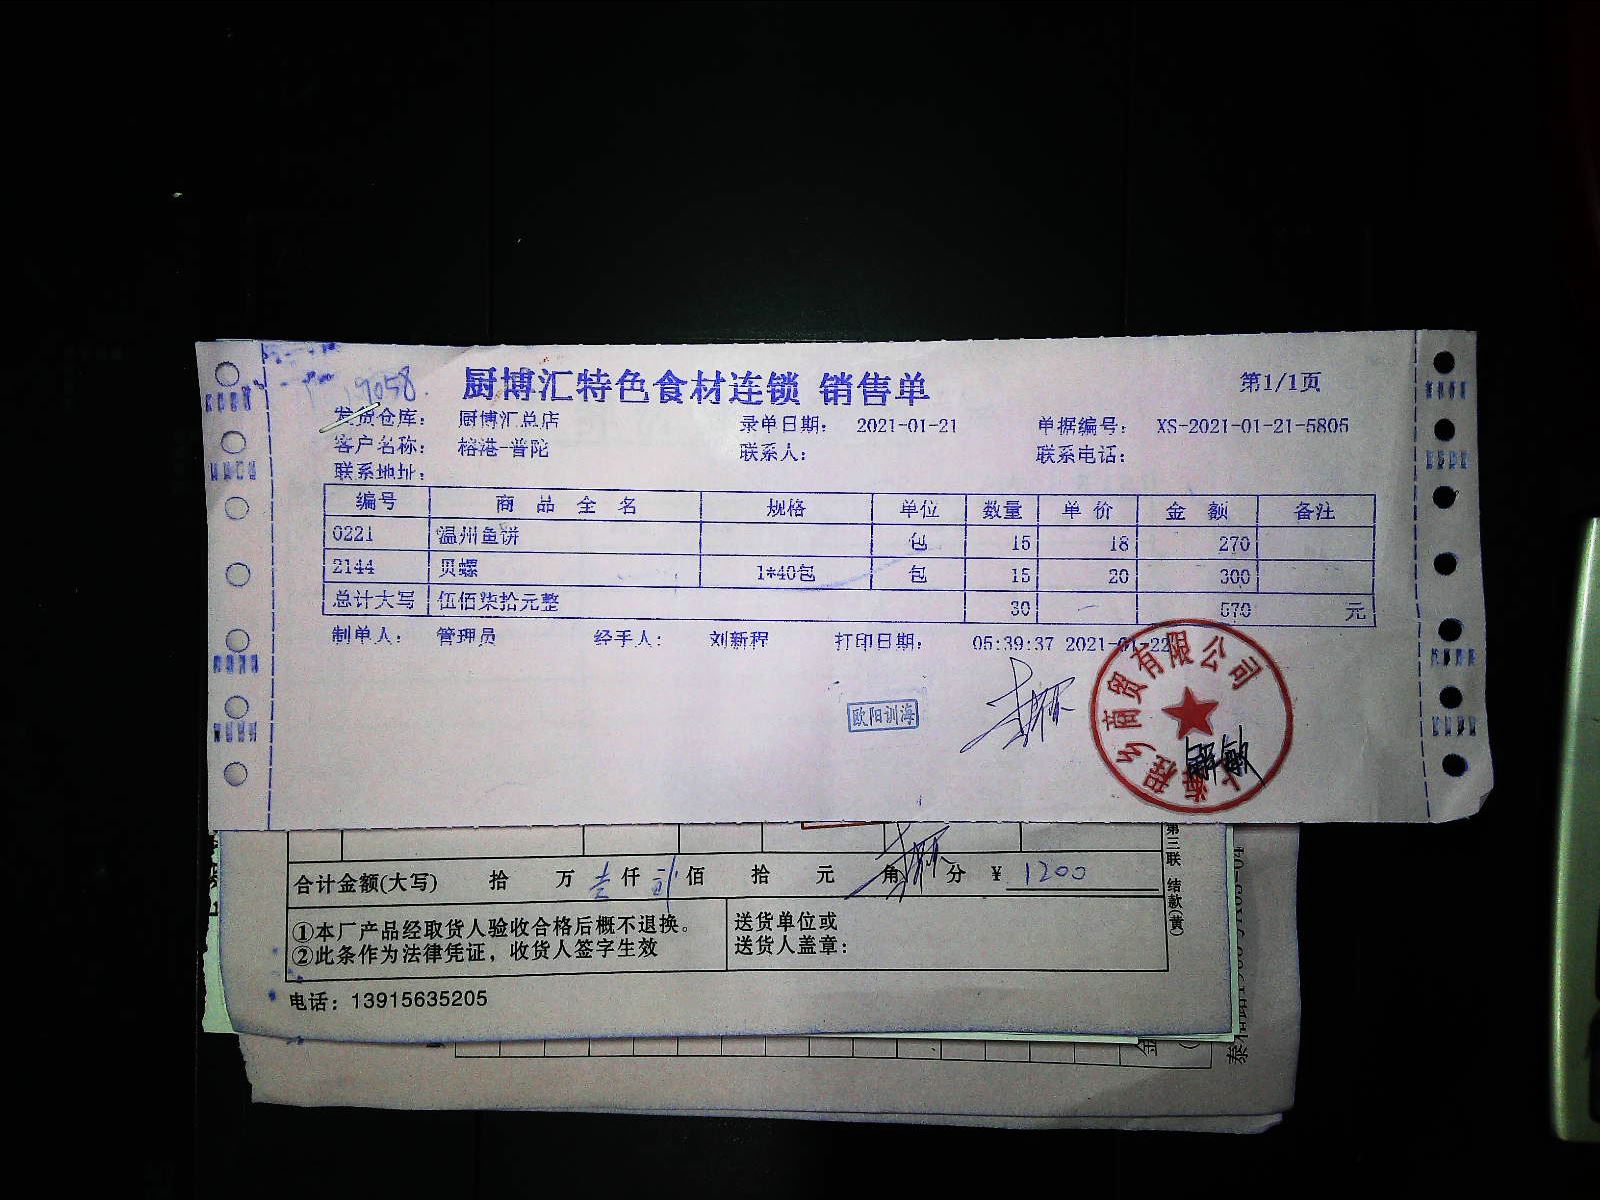 17058
厨博汇特色食材连锁 销售单 第1/1页
发货仓库： 厨博汇总店 录单日期： 2021-01-21 单据编号： XS-2021-01-21-5805
客户名称： 榕港-普陀 联系人： 联系电话：
联系地址：
编号 商品全名 规格 单位 数量 单价 金额 备注
0221 温州鱼饼 包 15 18 270
2144 贝螺 1*40包 包 15 20 300
总计大写 伍佰柒拾元整 30 570 元
制单人： 管理员 经手人： 刘新程 打印日期： 05:39:37 2021-01-22
欧阳训海
程乡商贸有限公司
解敏
合计金额(大写) 拾 万 壹 仟 贰 佰 拾 元 角 分 ¥ 1200
①本厂产品经取货人验收合格后概不退换。
②此条作为法律凭证，收货人签字生效
送货单位或
送货人盖章：
电话：13915635205
第三联 结款(黄)